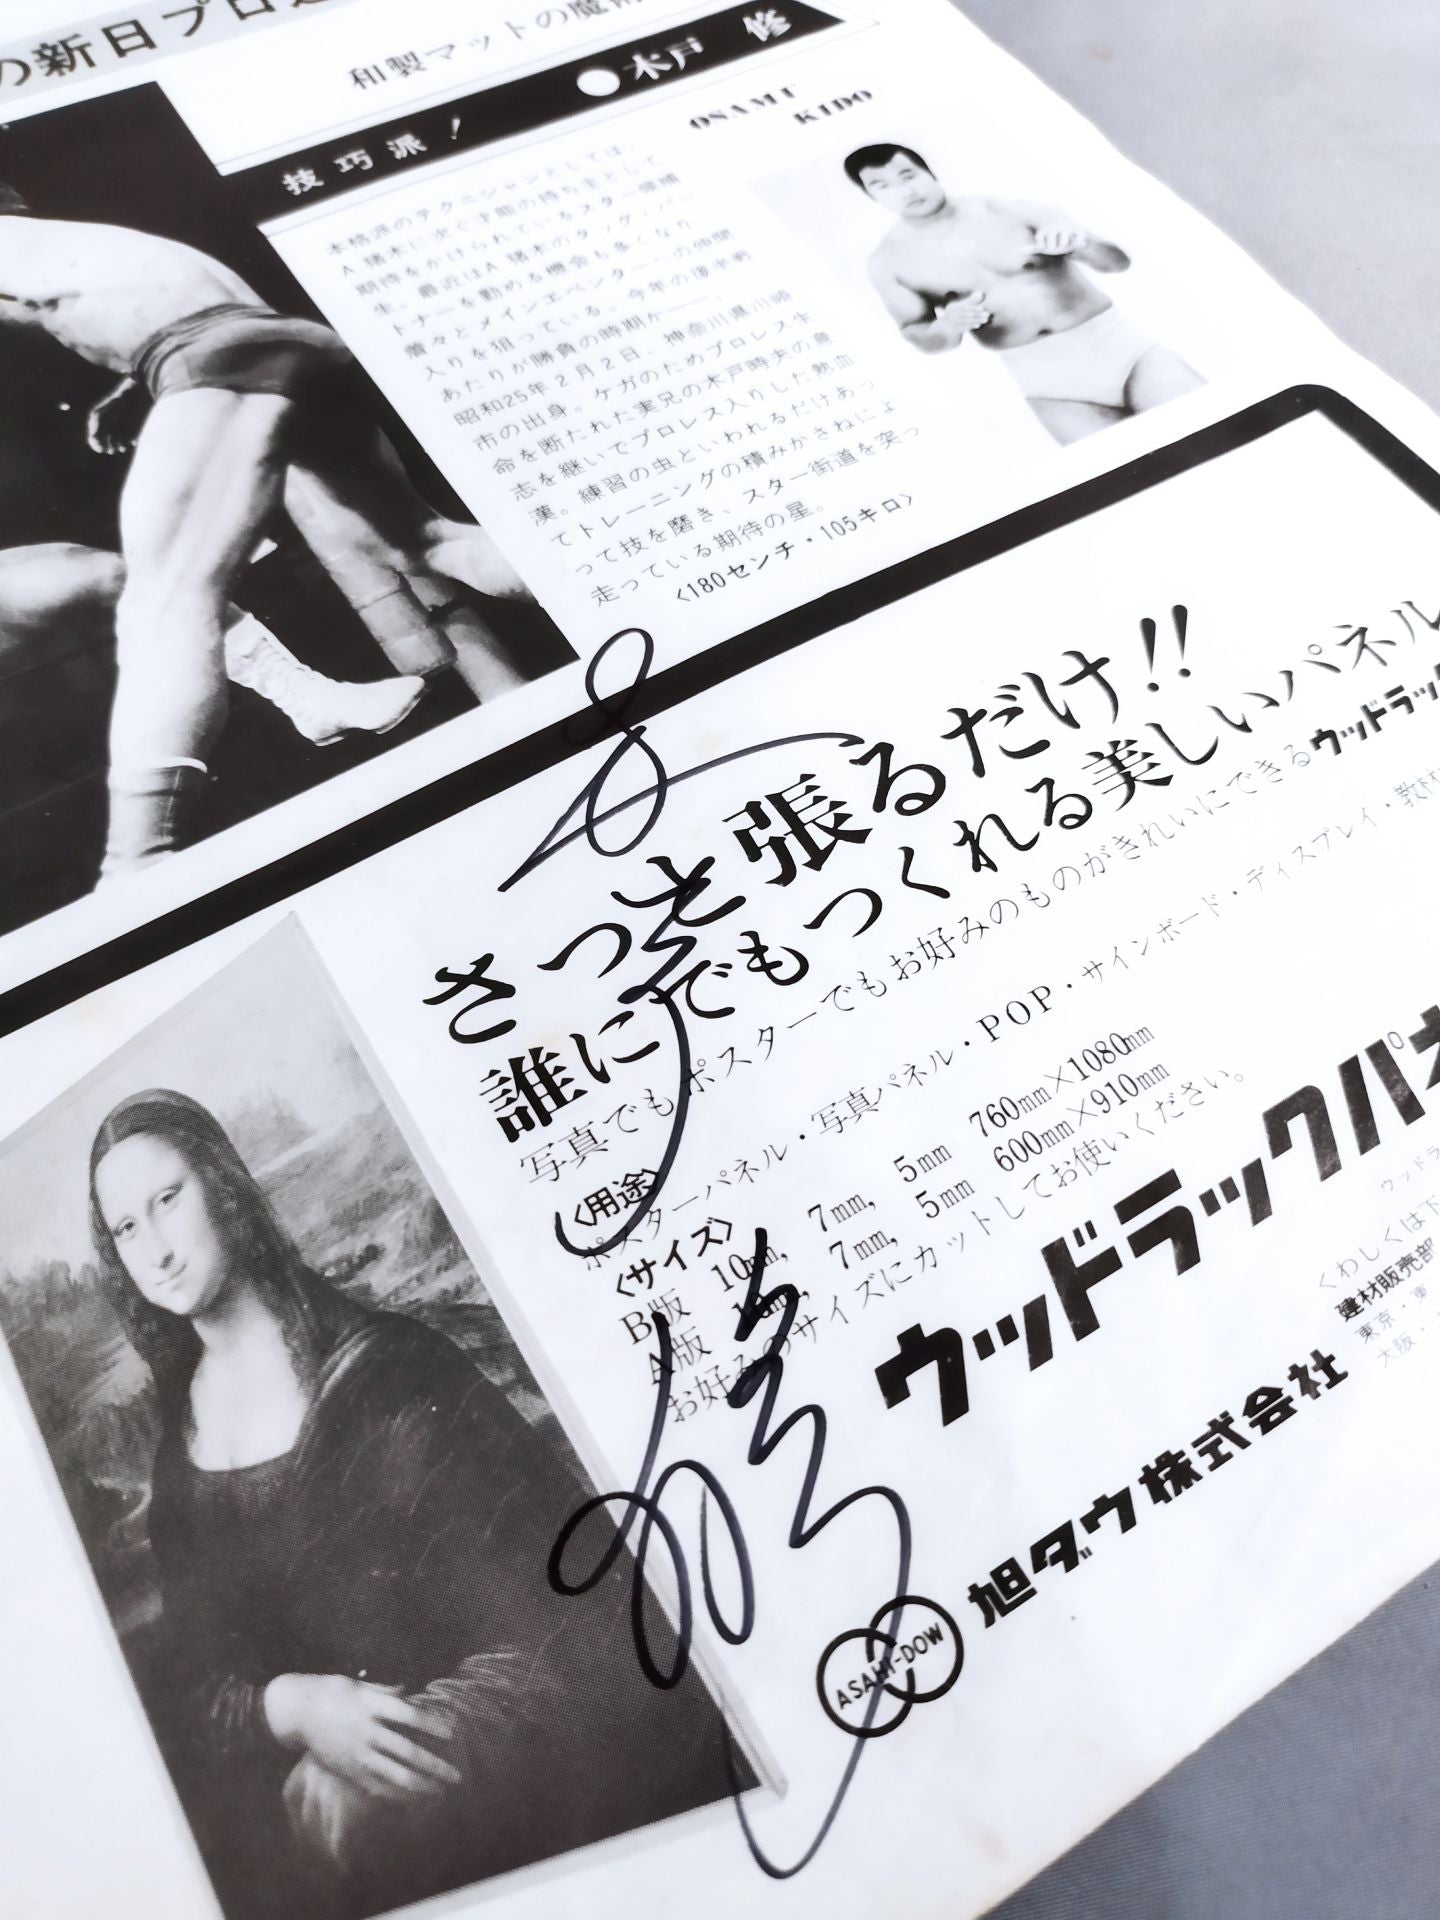 の新日プロ
和製マットの魔術
技巧派！ ●木戸 修
OSAMU
KIDO
本格派のテクニシャンとしては、
A 猪木に次ぐ才能の持ち主として
期待をかけられているスター候補
生。最近はA 猪木のタッグ・パー
トナーを勤める機会も多くなり
着々とメインエベンターへの仲間
入りを狙っている。今年の後半戦
あたりが勝負の時期か――。
昭和25年2月2日、神奈川県川崎
市の出身。ケガのためプロレス生
命を断たれた実兄の木戸時夫の意
志を継いでプロレス入りした熱血
漢。練習の虫といわれるだけあっ
てトレーニングの積みかさねによ
って技を磨き、スター街道を突っ
走っている期待の星。
〈180センチ・105キロ〉
さっと張るだけ!!
誰にでもつくれる美しいパネル
写真でもポスターでもお好みのものがきれいにできるウッドラック
〈用途〉
ポスターパネル・写真パネル・POP・サインボード・ディスプレイ・教材
〈サイズ〉
B版 10mm, 7mm, 5mm 760mm×1080mm
A版 10mm, 7mm, 5mm 600mm×910mm
お好みのサイズにカットしてお使いください。
ウッドラックパネ
ウッドラ
くわしくは下
建材販売部
東京・東
大阪・
旭ダウ株式会社
ASAHI-DOW
木戸修